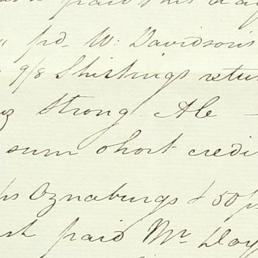 paid this day
" pd. W: Davidson's
9/8 Shirtings retu
Strong Ale -
sum short credi
ps Oznaburgs & 50 p
paid Mr Day